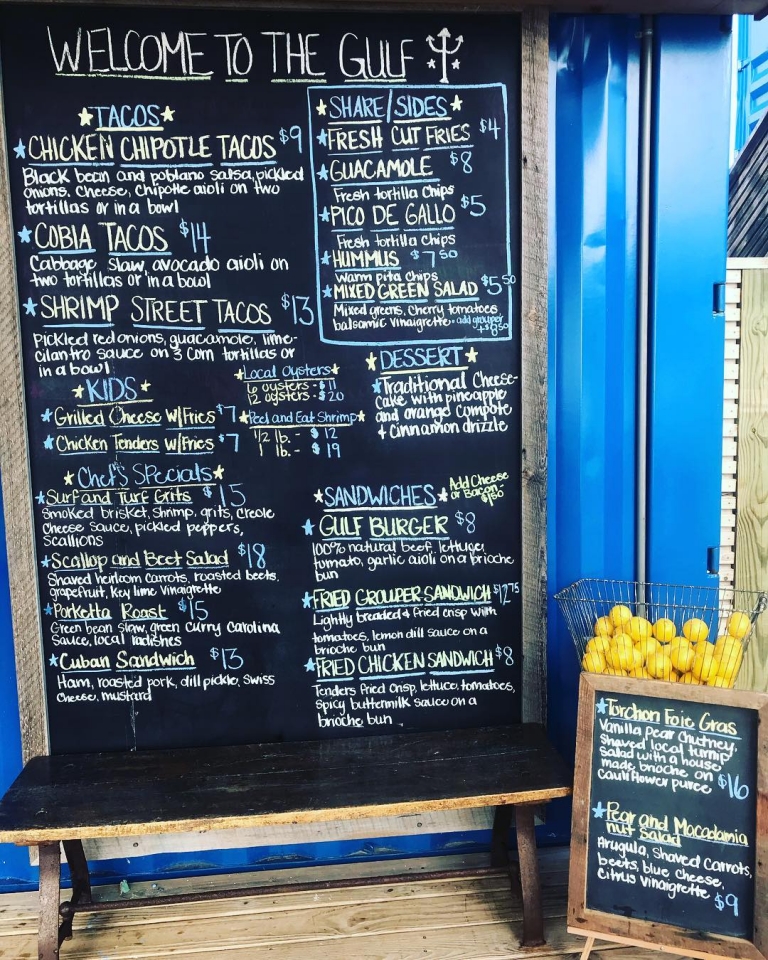 WELCOME TO THE GULF
★TACOS★
★CHICKEN CHIPOTLE TACOS $9
Black bean and poblano salsa, pickled
onions, cheese, chipotle aioli on two
tortillas or in a bowl
★COBIA TACOS $14
Cabbage slaw, avocado aioli on
two tortillas or in a bowl
★SHRIMP STREET TACOS $13
Pickled red onions, guacamole, lime-
cilantro sauce on 3 corn tortillas or
in a bowl
★KIDS★
★Grilled Cheese w/Fries $7
★Chicken Tenders w/Fries $7
★Local Oysters★
6 oysters - $11
12 oysters - $20
★Peel and Eat Shrimp★
1/2 lb. - $12
1 lb. - $19
★Chef's Specials★
★Surf and Turf Grits $15
Smoked brisket, shrimp, grits, creole
cheese sauce, pickled peppers,
scallions
★Scallop and Beet Salad $18
Shaved heirloom carrots, roasted beets,
grapefruit, key lime vinaigrette
★Porketta Roast $15
Green bean slaw, green curry Carolina
sauce, local radishes
★Cuban Sandwich $13
Ham, roasted pork, dill pickle, swiss
cheese, mustard
★SHARE/SIDES★
★FRESH CUT FRIES $4
★GUACAMOLE $8
Fresh tortilla chips
★PICO DE GALLO $5
Fresh tortilla chips
★HUMMUS $7.50
Warm pita chips
★MIXED GREEN SALAD $5.50
Mixed greens, cherry tomatoes
balsamic vinaigrette - add grouper
+$8.50
★DESSERT★
★Traditional Cheese-
cake with pineapple
and orange compote
+ cinnamon drizzle
★SANDWICHES★ Add Cheese
or Bacon
$1.50
★GULF BURGER $8
100% natural beef, lettuce,
tomato, garlic aioli on a brioche
bun
★FRIED GROUPER SANDWICH $12.75
Lightly breaded + fried crisp with
tomatoes, lemon dill sauce on a
brioche bun
★FRIED CHICKEN SANDWICH $8
Tenders fried crisp, lettuce, tomatoes,
spicy buttermilk sauce on a
brioche bun
★Torchon Foie Gras
Vanilla pear chutney,
shaved local turnip
salad with a house
made brioche on
cauliflower puree $16
★Pear and Macadamia
nut Salad
Arugula, shaved carrots,
beets, blue cheese,
citrus vinaigrette $9